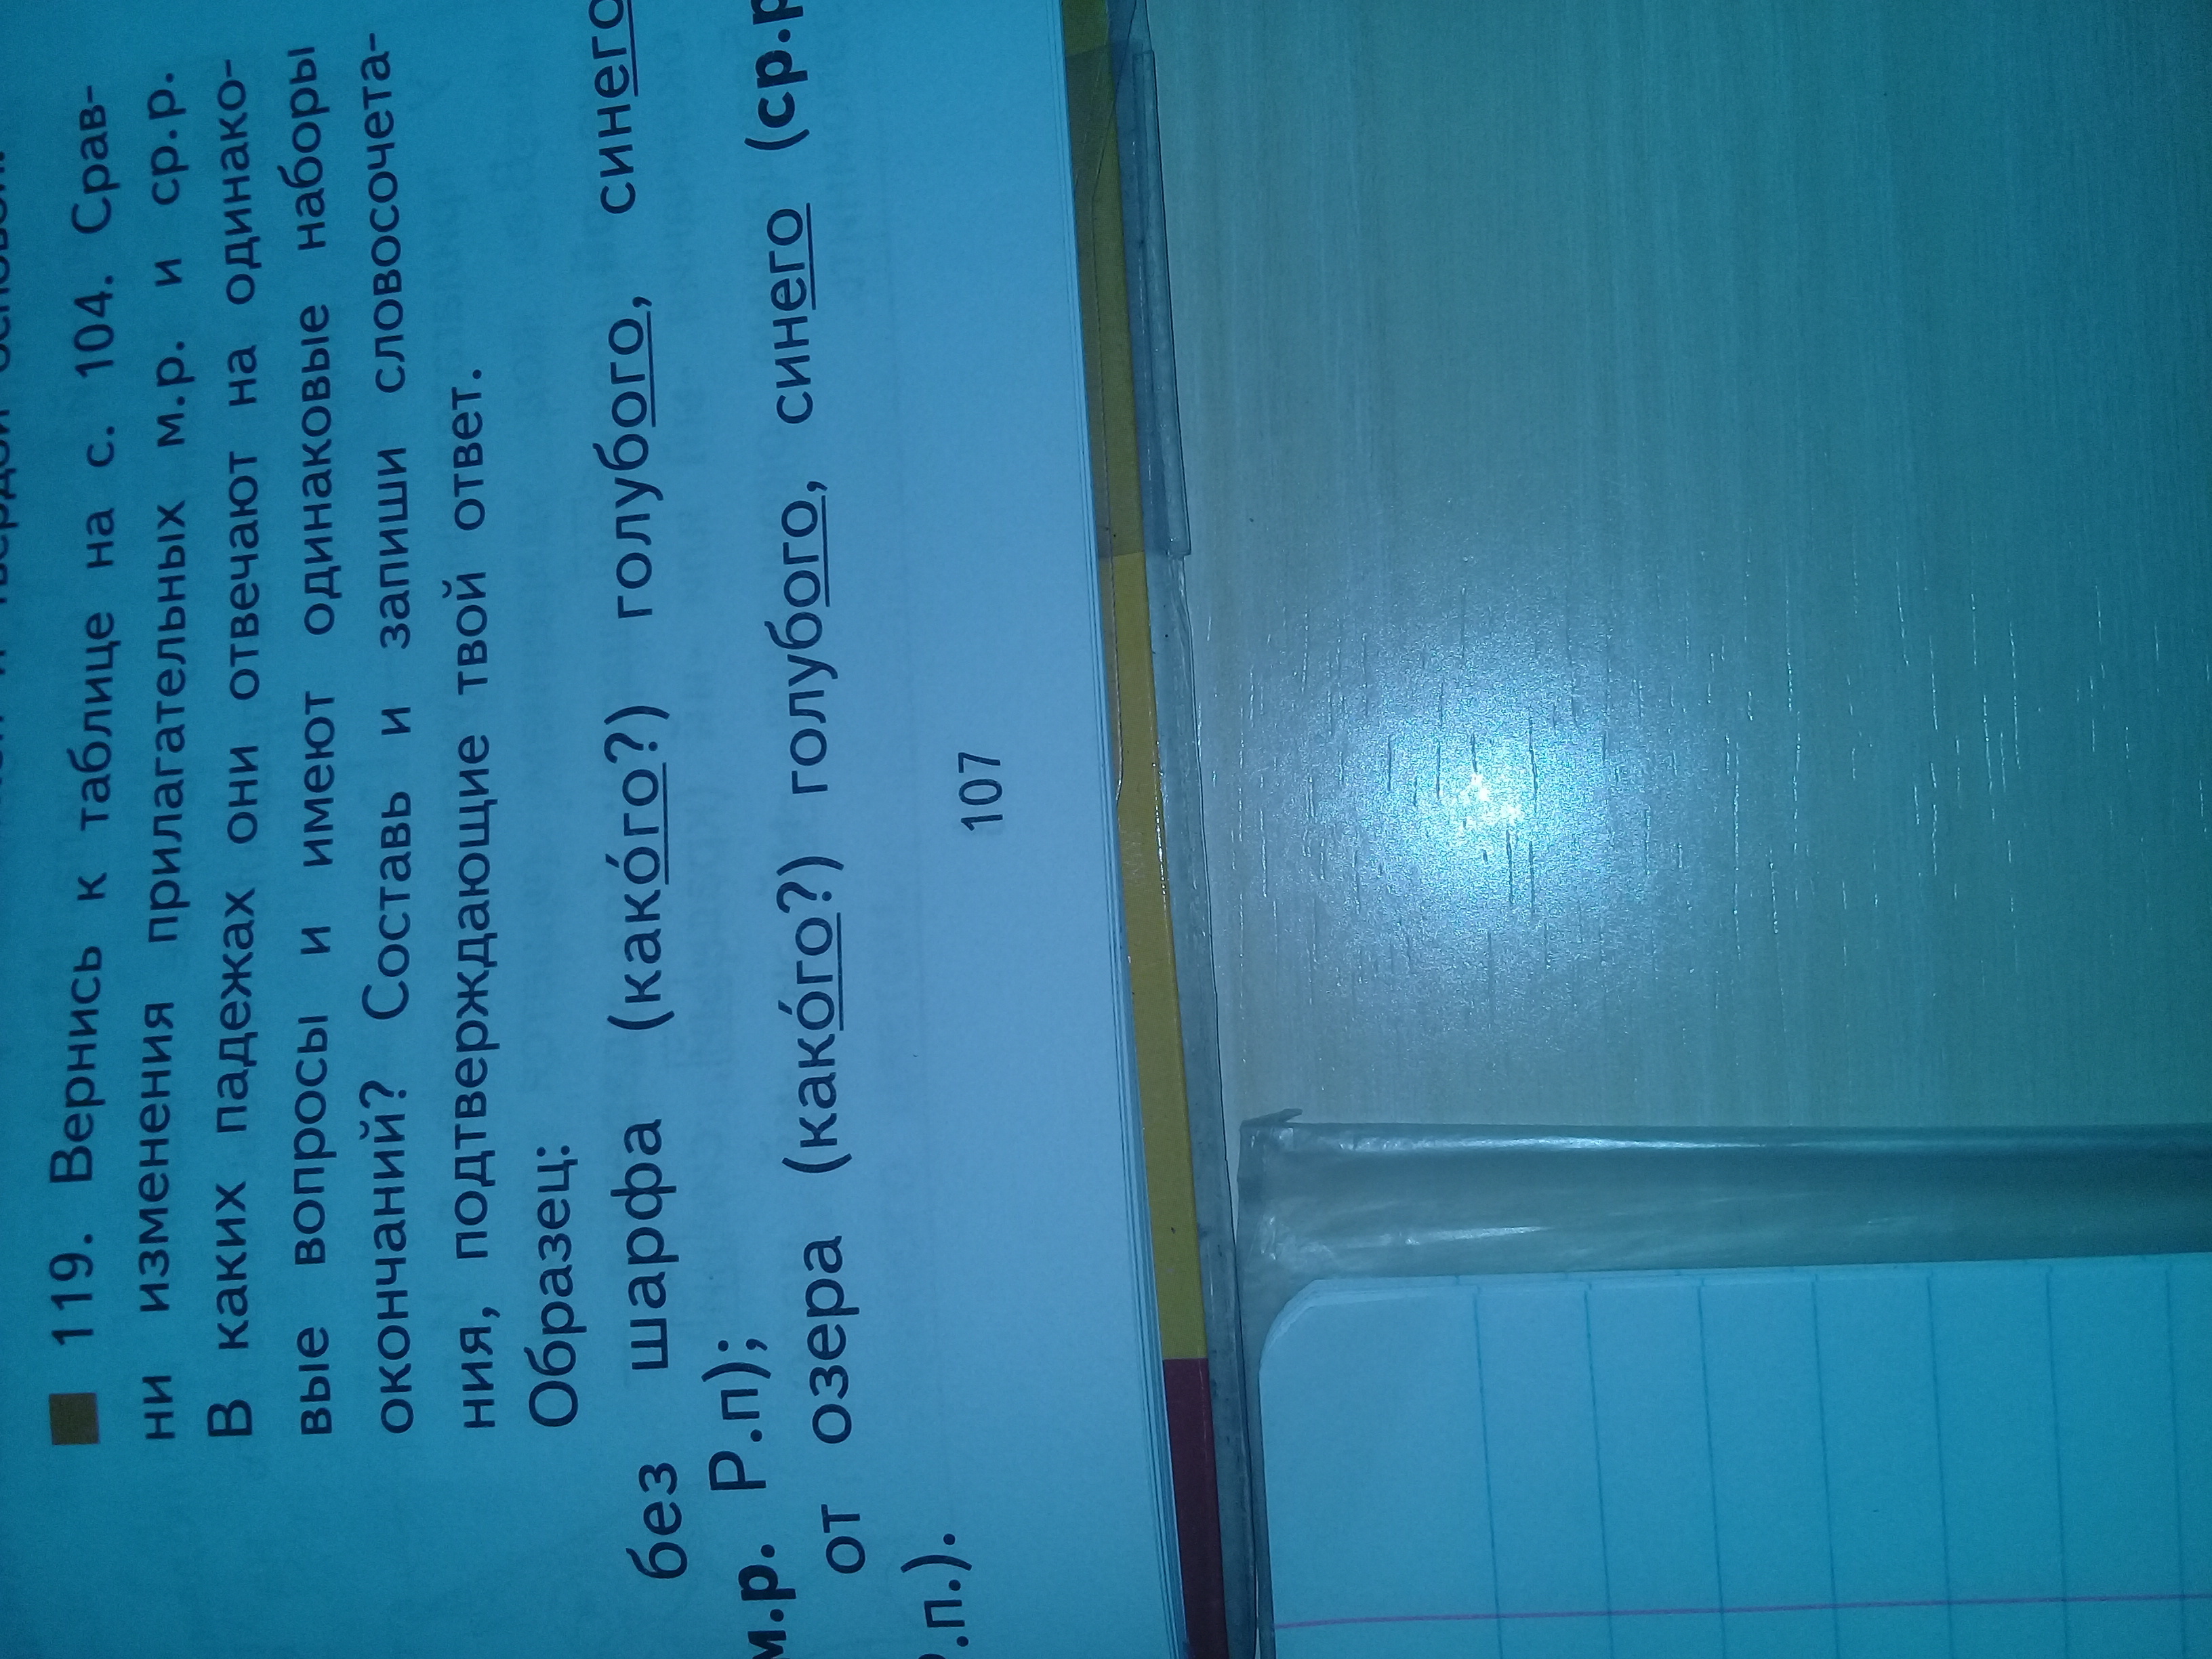 119. Вернись к таблице на с. 104. Срав-
ни изменения прилагательных м.р. и ср.р.
В каких падежах они отвечают на одинако-
вые вопросы и имеют одинаковые наборы
окончаний? Составь и запиши словосочета-
ния, подтверждающие твой ответ.
Образец:
без шарфа (како́го?) голубого, синего
м.р. Р.п);
от озера (како́го?) голубого, синего (ср.р
.п.).
107